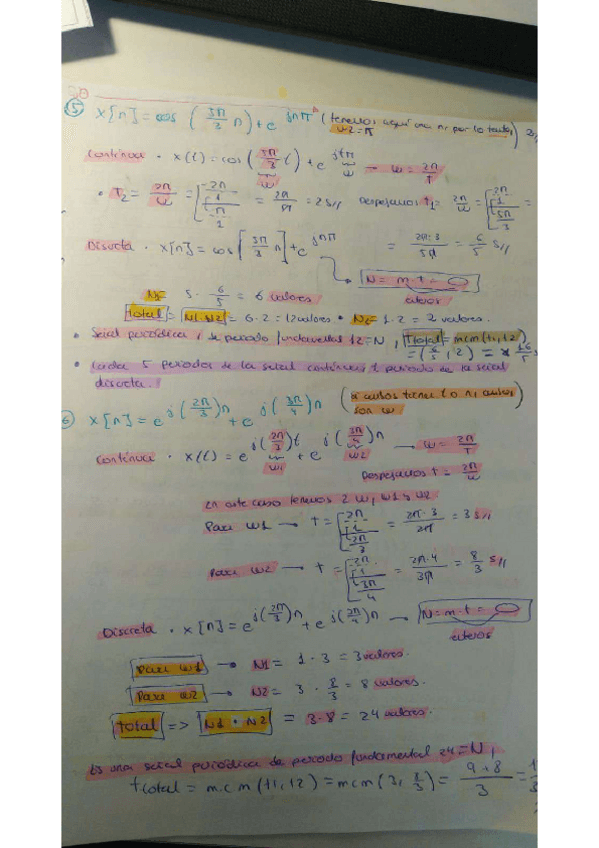 5 x[n] = cos (5π/3 n) + e^jnπ (tenemos aquí una n, por lo tanto, w2 = π)
Continua • x(t) = cos (5π/3 t) + e^jtπ → w = 2π/T
w w
• T2 = 2π/w = 2π/1/π/1 = 2π/π = 2 s// Despejamos t1 = 2π/w = 2π/1/5π/3 =
Discreta • x[n] = cos [5π/3 n] + e^jnπ = 2π·3/5π = 6/5 s//
N = m·t =
enteros
N1 = 5 · 6/5 = 6 valores
Total = N1·N2 = 6·2 = 12 valores • N2 = 1·2 = 2 valores.
• Señal periódica, de periodo fundamental 12 = N, Ttotal = mcm (t1, t2)
= (6/5, 2) =
• Cada 5 periodos de la señal continua, 1 periodo de la señal
discreta.
6 x[n] = e^j(2π/3)n + e^j(3π/4)n
son w
Continua • x(t) = e^j(2π/3)t + e^j(3π/4)n → w = 2π/T
w1 w2
Despejamos t = 2π/w
En este caso tenemos 2 w, w1 y w2
Para w1 → t = 2π/1/2π/3 = 2π·3/2π = 3 s//
Para w2 → t = 2π/1/3π/4 = 2π·4/3π = 8/3 s//
Discreta • x[n] = e^j(2π/3)n + e^j(2π/4)n → N = m·t =
enteros
Para w1 → N1 = 1 · 3 = 3 valores.
Para w2 → N2 = 3 · 8/3 = 8 valores.
total => N1 · N2 = 3·8 = 24 valores.
Es una señal periódica de periodo fundamental 24 = N,
t total = m.c.m (t1, t2) = mcm (3, 8/3) = 9·8/3 =